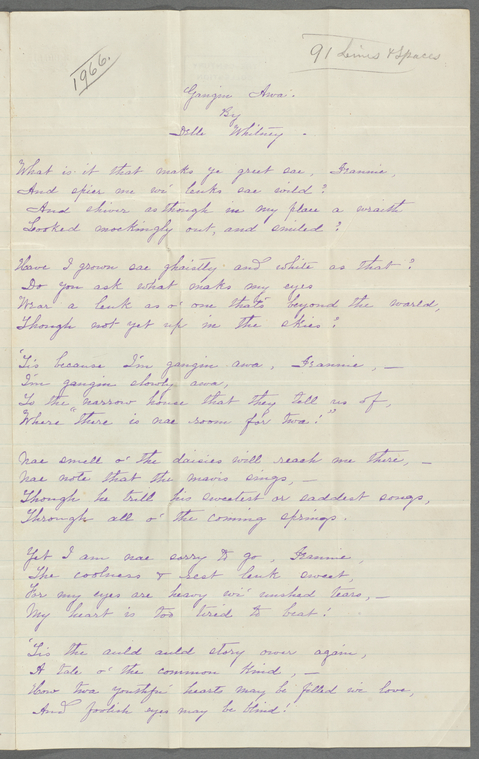 1966.
91 Lines & Spaces
Gangin Awa.
By
Delle Whitney.
What is it that maks ye greet sae, Jeannie,
And spier me wi' leuks sae wild?
And shiver as though in my place a wraith
Looked mockingly out, and smiled?
Have I grown sae ghaistly and white as that?
Do you ask what maks my eyes
Wear a leuk as o' one that's beyond the world,
Though not yet up in the skies?
'Tis because I'm gangin awa, Jeannie, —
I'm gangin slowly awa,
To the "narrow house that they tell us of,
Where "there is nae room for twa!"
Nae smell o' the daisies will reach me there, —
Nae note that the mavis sings, —
Though he trill his sweetest or saddest songs,
Through all o' the coming springs.
Yet I am nae sorry to go, Jeannie,
The coolness & rest leuk sweet,
For my eyes are heavy wi' unshed tears, —
My heart is too tired to beat!
'Tis the auld auld story ower again,
A tale o' the common kind, —
How twa youthfu' hearts may be filled wi' love,
And foolish eyes may be blind!